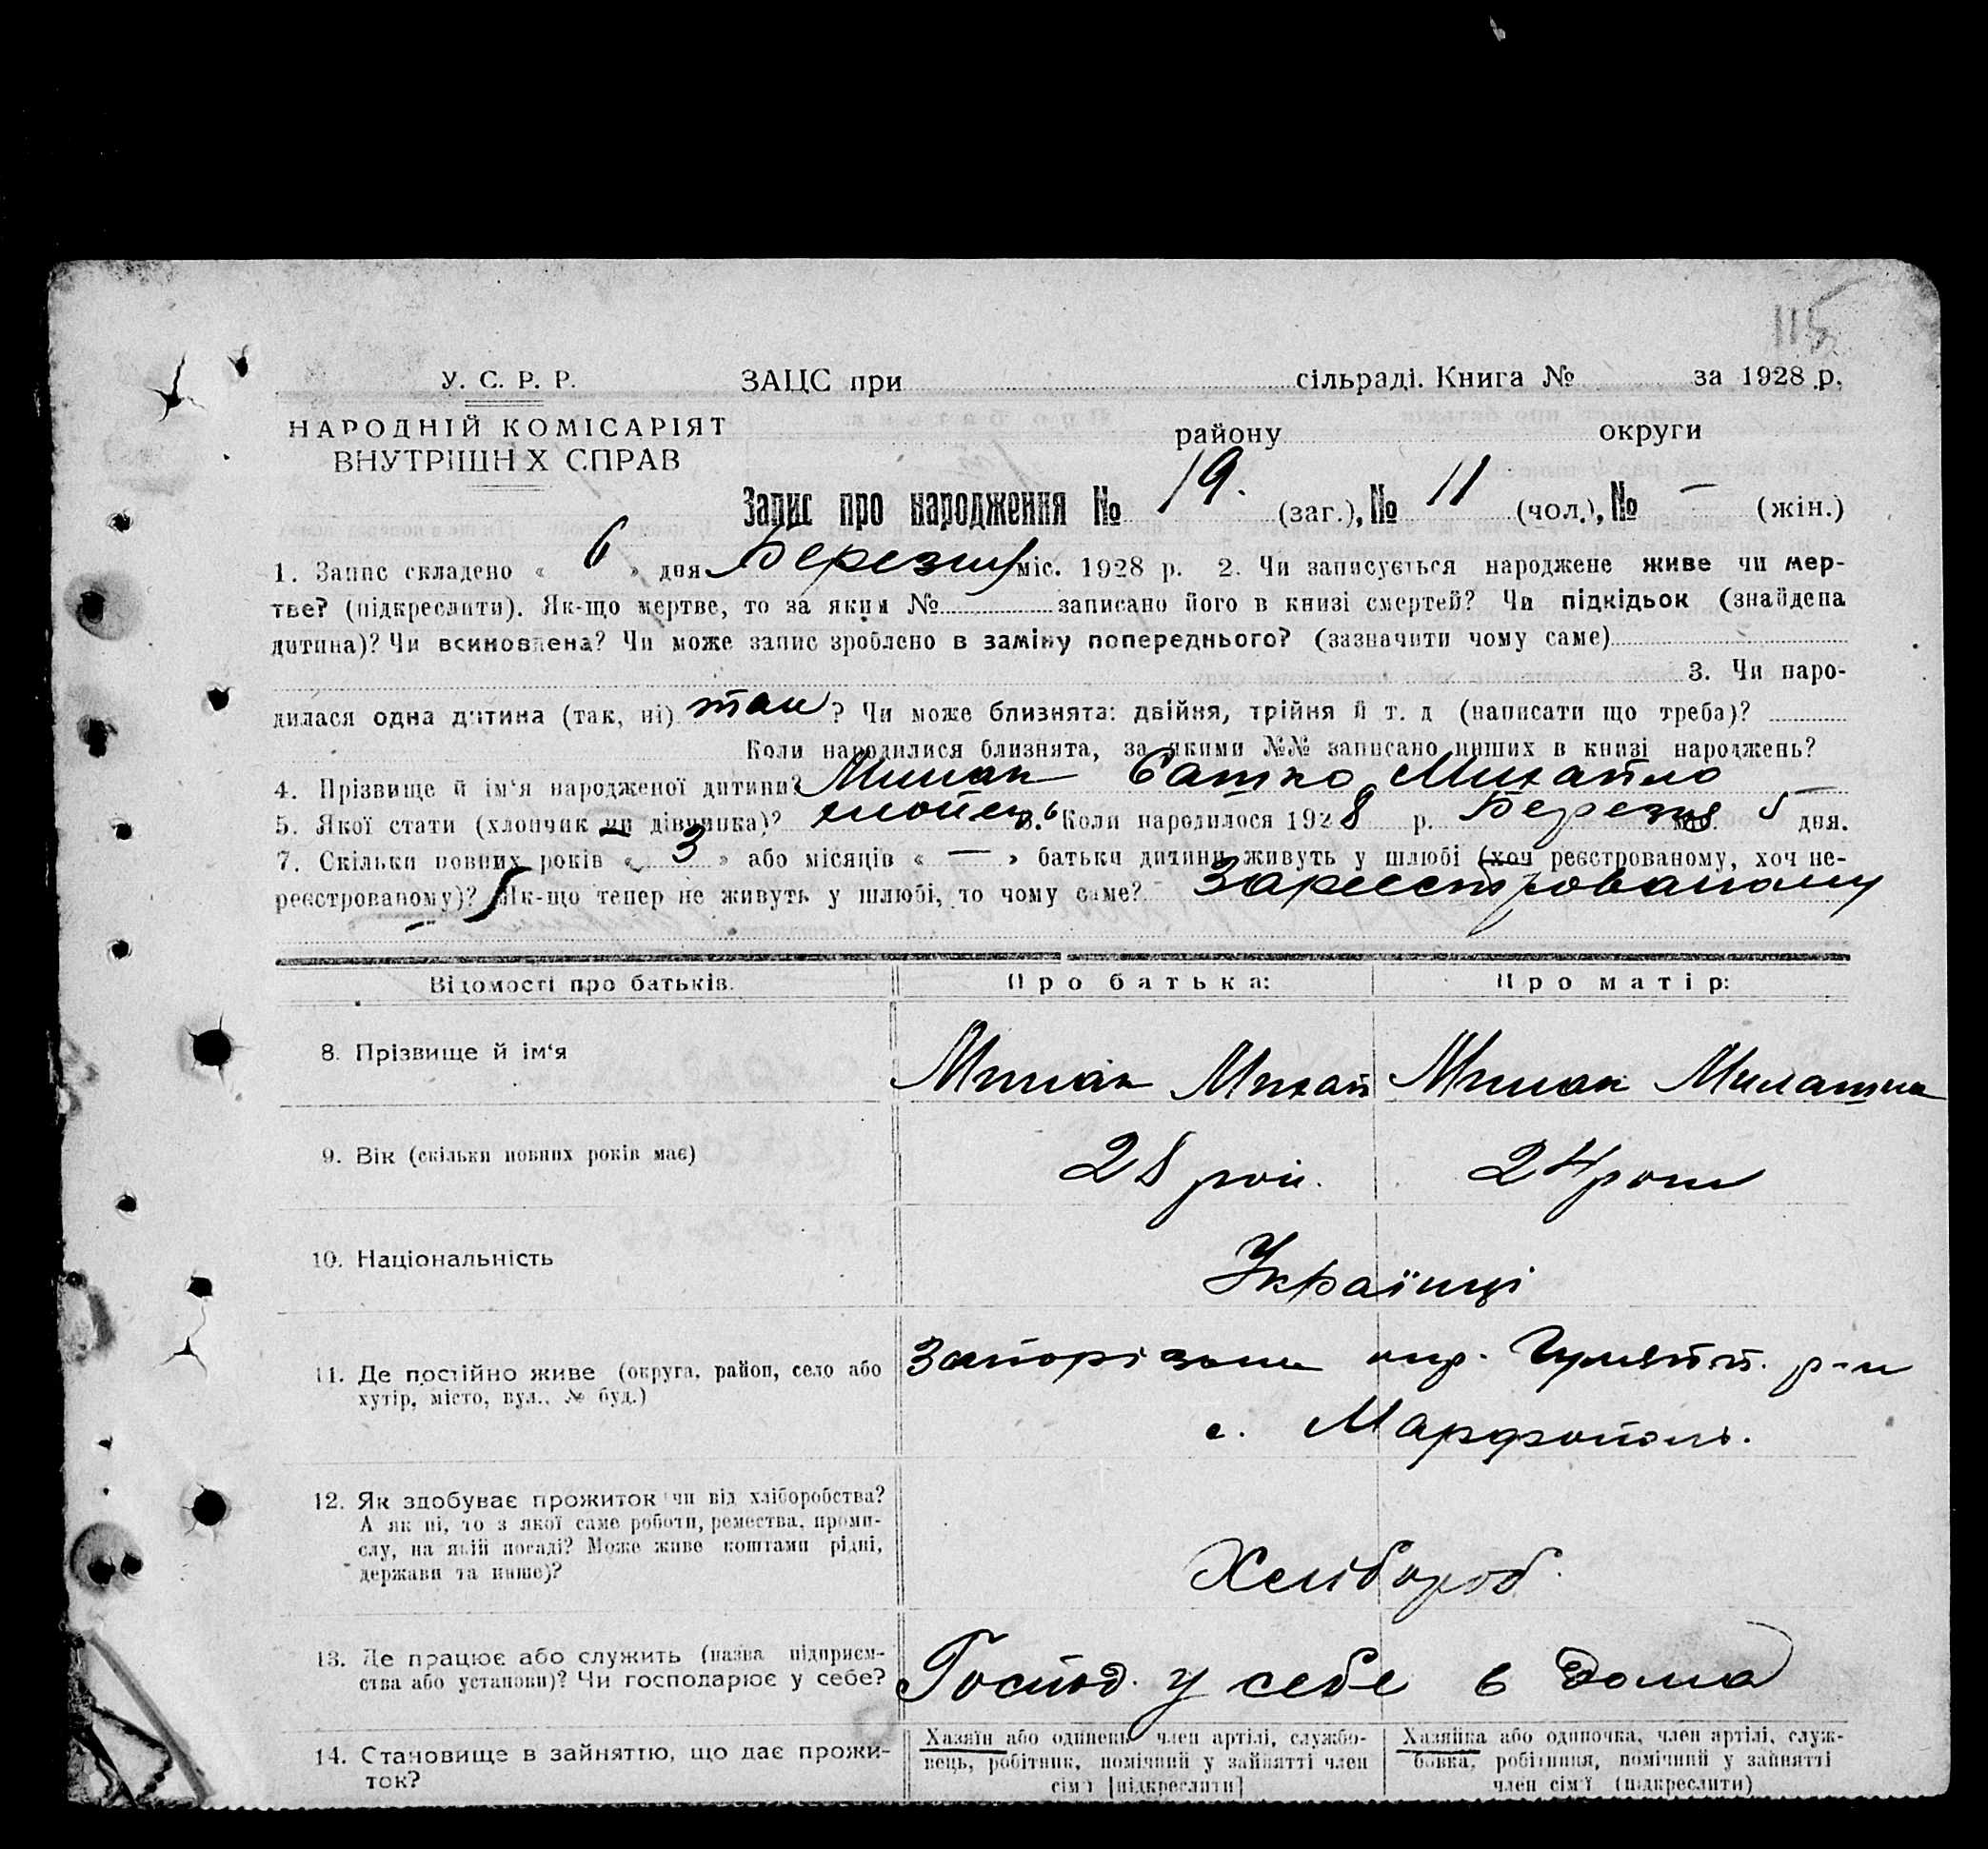 115
У. С. Р. Р. ЗАЦС при сільраді. Книга № за 1928 р.
НАРОДНІЙ КОМІСАРІЯТ
ВНУТРІШНІХ СПРАВ
району округи
Запис про народження № 19. (заг.), № 11 (чол.), № — (жін.)
1. Запис складено « 6 » дня Березня міс. 1928 р. 2. Чи записується народжене живе чи мер-
тве? (підкреслити). Як-що мертве, то за яким № записано його в книзі смертей? Чи підкідьок (знайдена
дитина)? Чи всиновлена? Чи може запис зроблено в заміну попереднього? (зазначити чому саме)
3. Чи наро-
дилася одна дитина (так, ні) так? Чи може близнята: двійня, трійня й т. д (написати що треба)?
Коли народилися близнята, за якими №№ записано инших в книзі народжень?
4. Прізвище й ім'я народженої дитини? Михайло
5. Якої стати (хлопчик чи дівчинка)? хлопець 6. Коли народилося 1928 р. Березня міс. 5 дня.
7. Скільки повних років « 3 » або місяців « — » батьки дитини живуть у шлюбі (хоч реєстрованому, хоч не-
реєстрованому)? Як-що тепер не живуть у шлюбі, то чому саме? Зареєстрованому
Відомості про батьків. Про батька: Про матір:
8. Прізвище й ім'я
9. Вік (скільки повних років має) 28 рок. 24 роки
10. Національність Українці
11. Де постійно живе (округа, район, село або
хутір, місто, вул., № буд.)
Запорізька окр. р-н
с. Марфополь.
12. Як здобуває прожиток чи від хліборобства?
А як ні, то з якої саме роботи, ремества, проми-
слу, на якій посаді? Може живе коштами рідні,
держави та инше)?
Хлібороб.
13. Де працює або служить (назва підприєм-
ства або установи)? Чи господарює у себе?
Господ. у себе в дома
14. Становище в зайняттю, що дає прожи-
ток?
Хазяїн або одинець, член артілі, службо-
вець, робітник, помічний у зайнятті член
сім'ї [підкреслити]
Хазяйка або одиночка, член артілі, служ-
бовка, робітниця, помічний у зайнятті
член сім'ї (підкреслити)